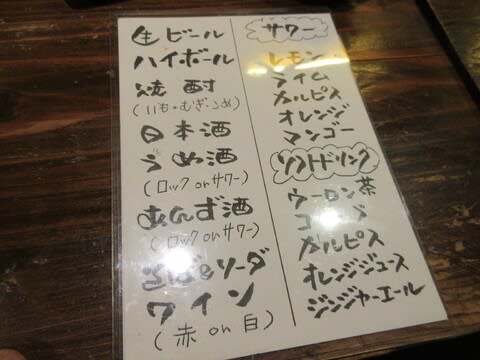 生ビール
ハイボール
焼酎
(いも・むぎ・こめ)
日本酒
うめ酒
(ロック or サワー)
あんず酒
(ロック or サワー)
ソーダ
ワイン
(赤 or 白)
サワー
レモン
ライム
カルピス
オレンジ
マンゴー
ソフトドリンク
ウーロン茶
カルピス
オレンジジュース
ジンジャーエール